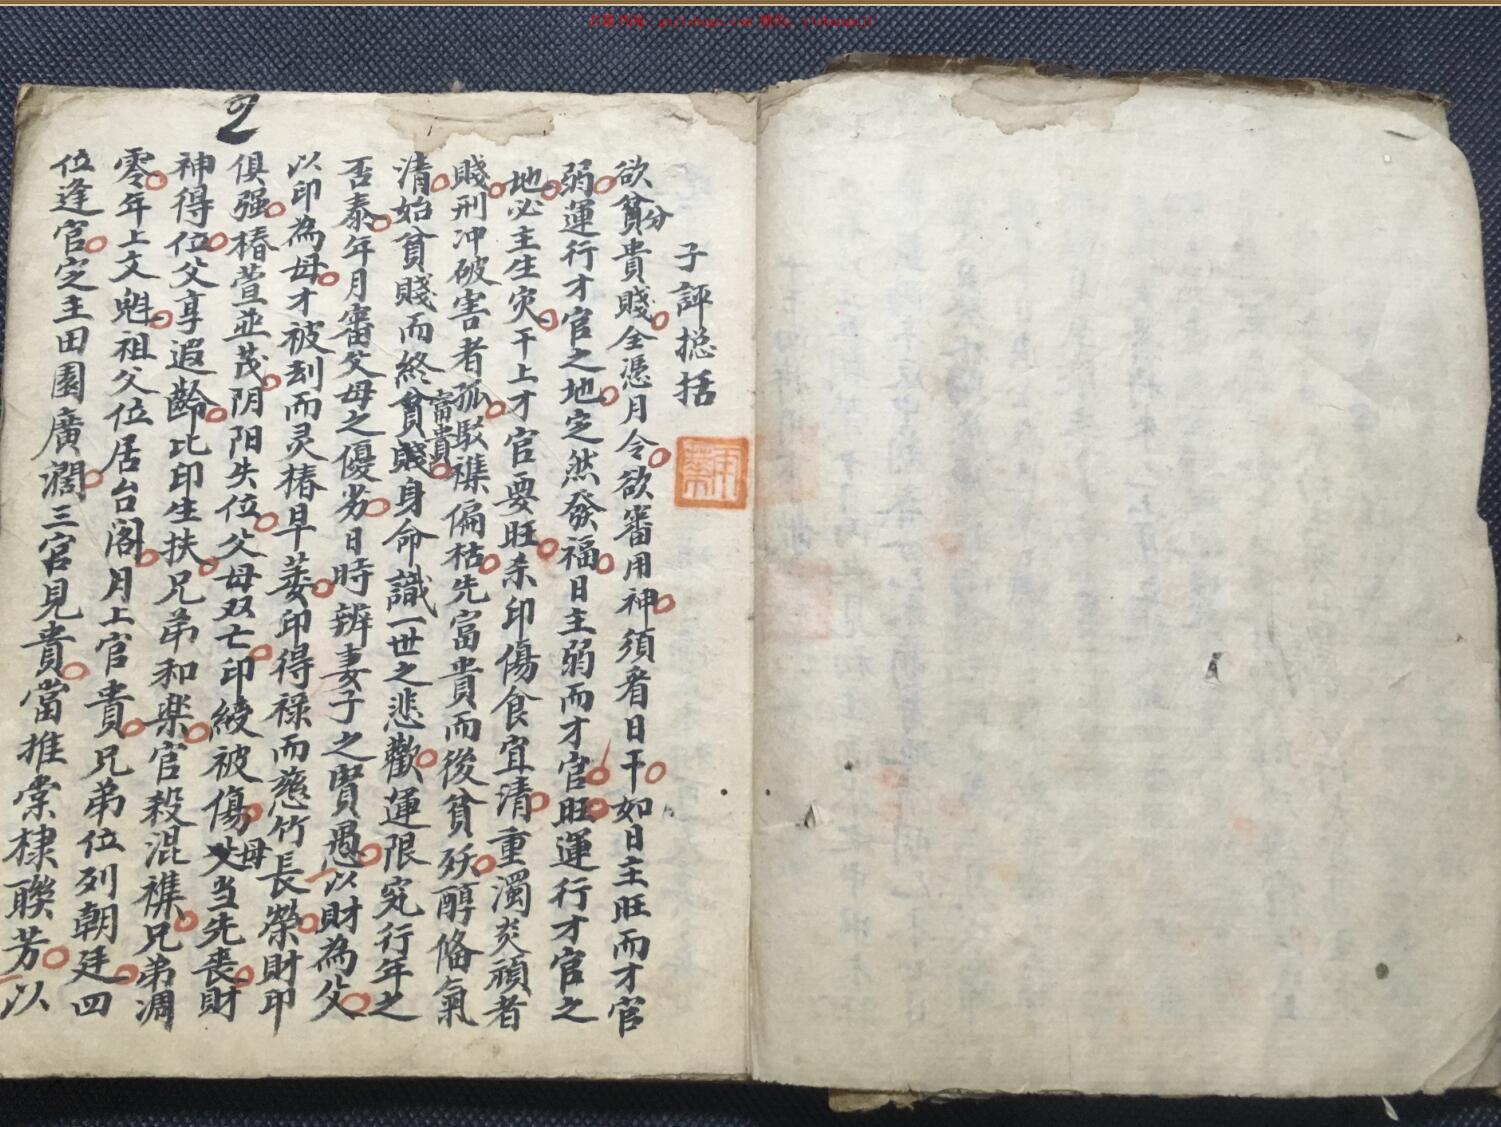 子評捴括
欲分貧貴賤全憑月令欲審用神須看日干如日主旺而才官
弱運行才官之地定然發福日主弱而才官旺運行才官之
地必主生灾干上才官要旺杀印傷食宜清重濁炎頑者
賤刑冲破害者孤駁襍偏枯先富貴而後貧妖醇俻氣
清始貧賤而終富貴身命識一世之悲歡運限究行年之
否泰年月審父母之優劣日時辨妻子之賢愚以財為父
以印為母才被刼而灵椿早萎印得禄而慈竹長榮財印
俱强椿萱並茂阴阳失位父母双亡印綬被傷母当先丧財
神得位父享遐齡比印生扶兄弟和楽官殺混襍兄弟凋
零年上文魁祖父位居台阁月上官貴兄弟位列朝廷四
位逢官定主田園廣濶三宫見貴當推棠棣聯芳以